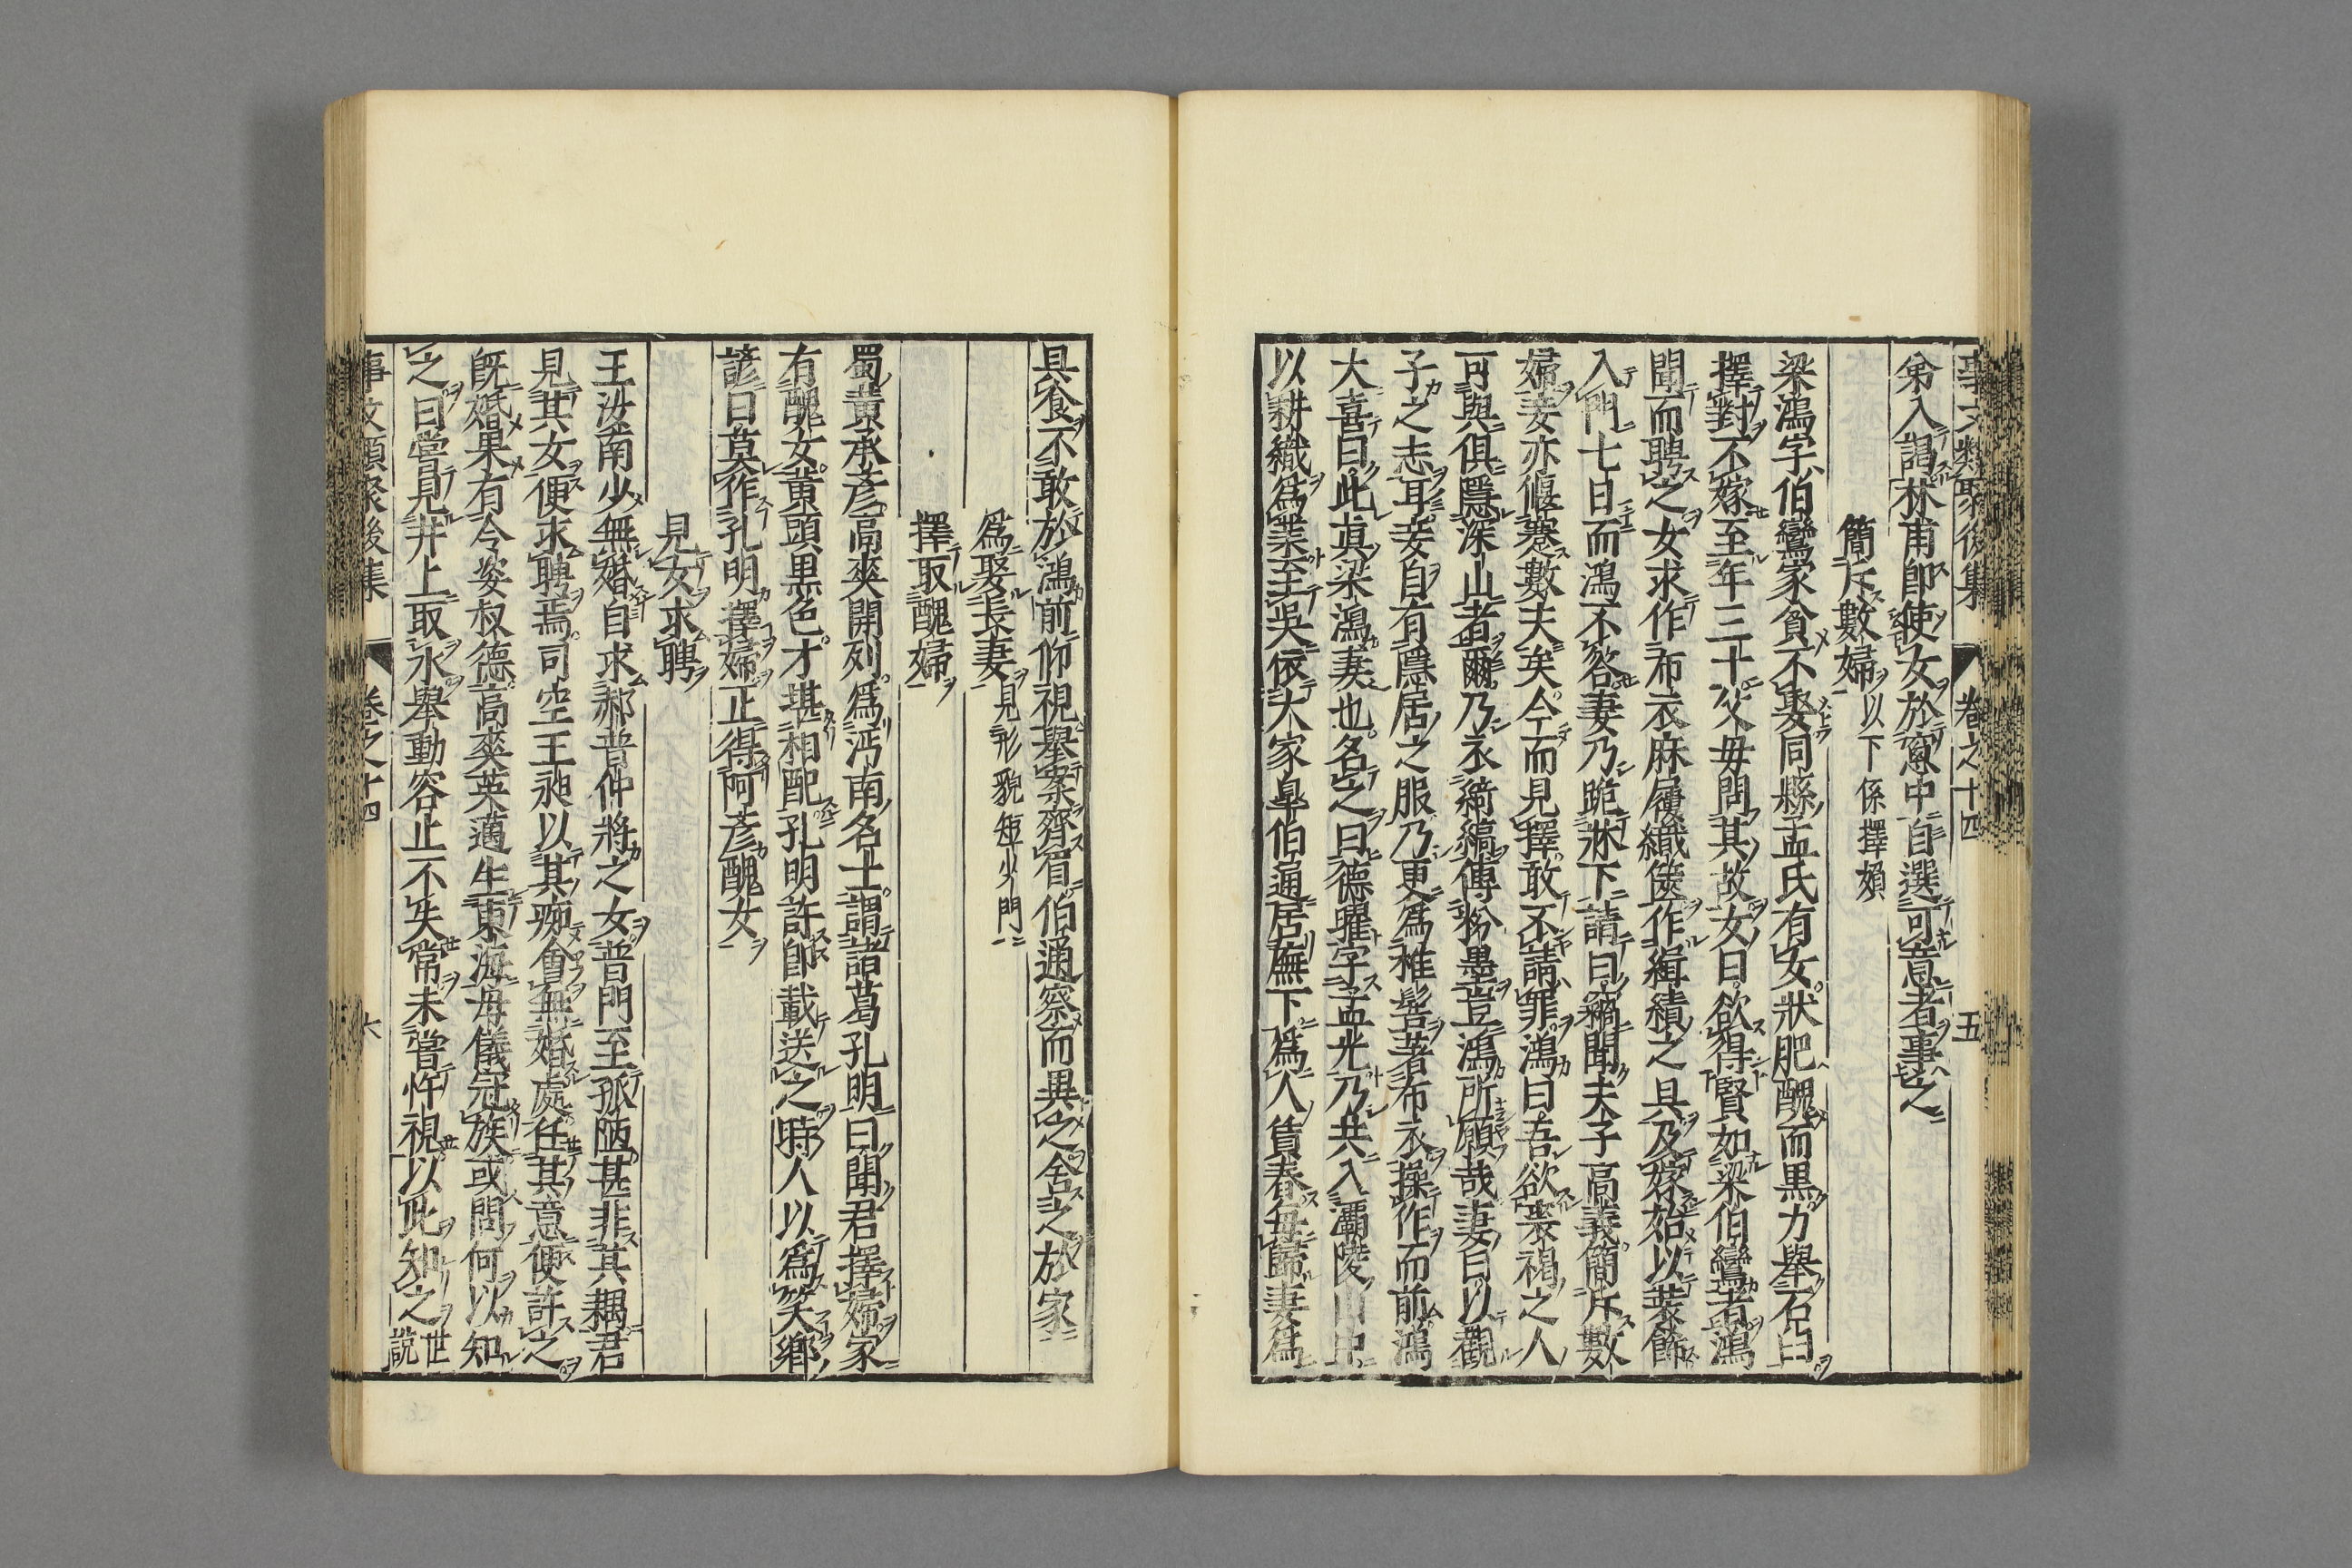 事文類聚後集 卷之十四 五
弟入謁林甫卽使女於窻中自選可意者事之
簡斥數婦以下係擇嬪
梁鴻字伯鸞家貧不娶同縣孟氏有女狀肥醜而黑力舉石臼
擇對不嫁至年三十父母問其故女曰欲得賢如梁伯鸞者鴻
聞而聘之女求作布衣麻屨織筐作緝績之具及嫁始以裝飾
入門七日而鴻不答妻乃跪牀下請曰竊聞夫子高義簡斥數
婦妾亦偃蹇數夫矣今而見擇敢不請罪鴻曰吾欲裘褐之人
可與俱隱深山者爾乃衣綺縞傅粉墨豈鴻所願哉妻曰以觀
子之志耳妾自有隱居之服乃更爲椎髻著布衣操作而前鴻
大喜曰此真梁鴻妻也名之曰德曜字孟光乃共入霸陵山中
以耕織爲業至吳依大家臯伯通居廡下爲人賃舂每歸妻爲
具食不敢於鴻前仰視舉案齊眉伯通察而異之舍之於家
爲娶長妻見形貌短少門
擇取醜婦
蜀黃承彥高爽開列爲沔南名士謂諸葛孔明曰聞君擇婦家
有醜女黃頭黑色才堪相配孔明許卽載送之時人以爲笑鄉
諺曰莫作孔明擇婦正得阿彥醜女
見女求聘
王汝南少無婚自求郝普仲將之女普門至孤陋甚非其耦君
見其女便求聘焉司空王昶以其癡會無婚處任其意便許之
旣婚果有令姿叔德高爽英邁生東海母儀冠族或問何以知
之曰嘗見井上取水舉動容止不失常未嘗忤視以此知之世說
事文類聚後集 卷之十四 六